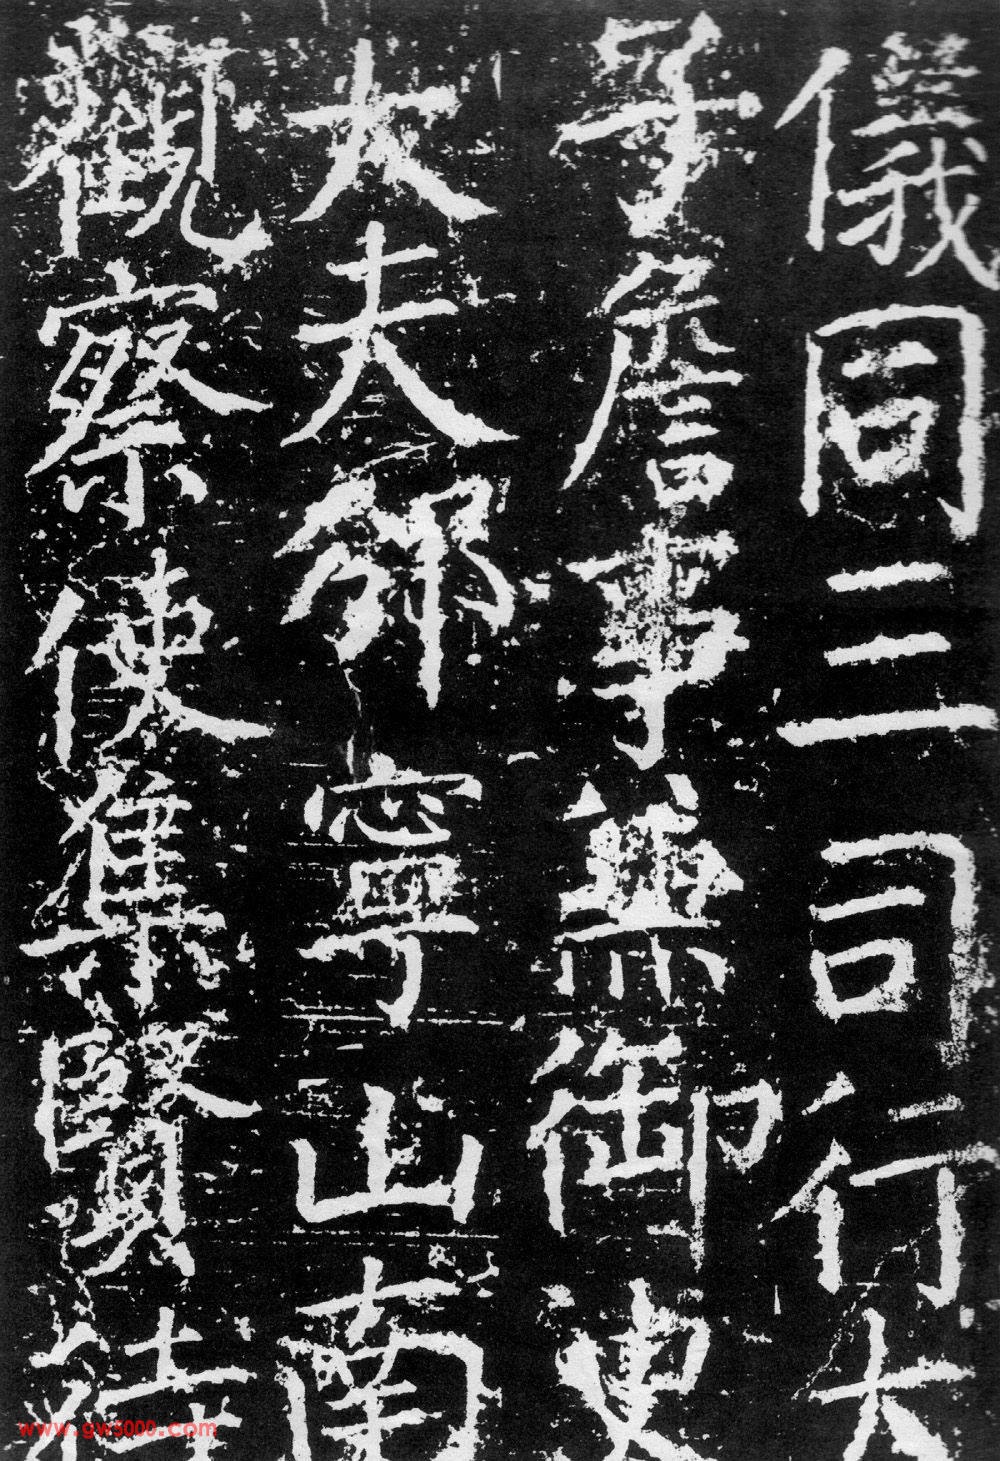 儀同三司行太
子詹事兼御史
大夫邠寧山南
觀察使集賢待
www.gw5000.com